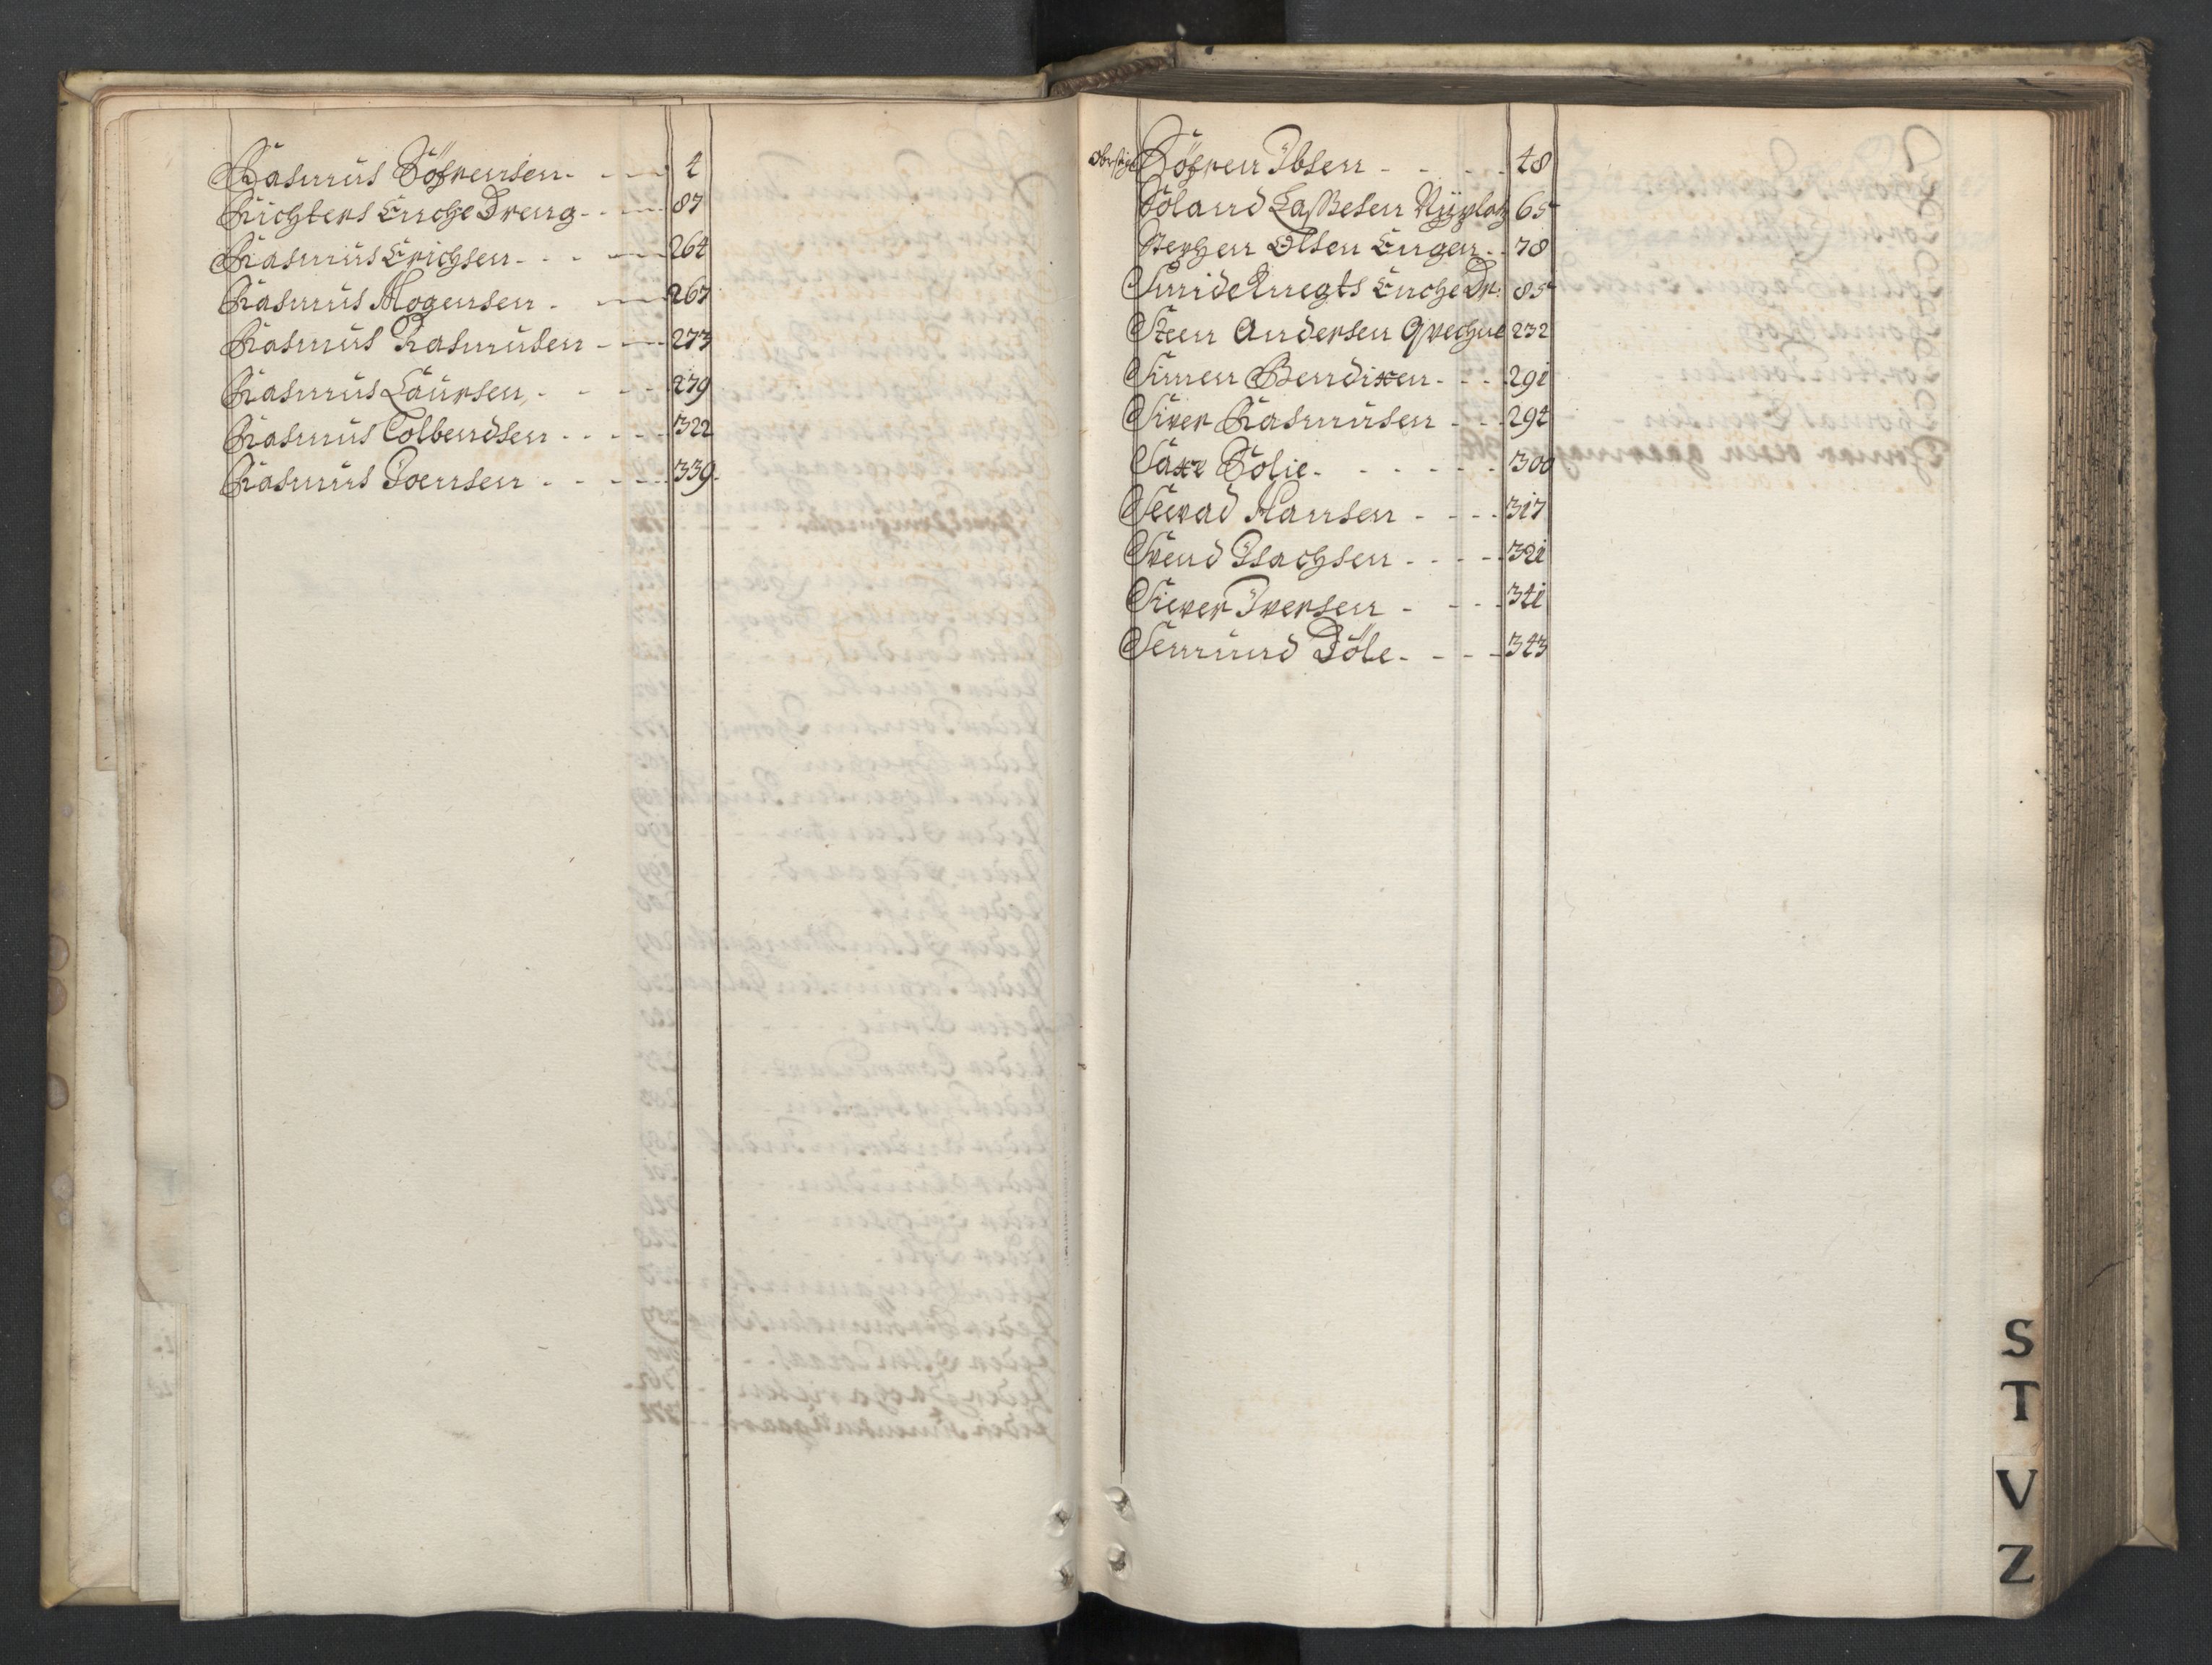 Rasmus Söfrensen - - - 4
Richters Enche Dreng - - - 87
Rasmus Erichsen - - - 264
Rasmus Mogensen - - 267
Rasmus Rasmusen - - 273
Rasmus Laursen - - - 279
Rasmus Colbendsen - - - - - 322
Rasmus Joensen - - - - - 339
Söfren Ibsen - - - - 48
Söland Laßesen Nÿeplads 65
Stephen Olsen Enger - - 78
Smideknegts Enche Dr: 85
Steen Andersen Grechne 232
Simen Bendixen - - - 291
Siver Rasmusen - - - 294
Saxe Solie - - - - - - 300
Sievad Hansen - - - - 317
Svend Isachsen - - - - 321
Siever Iversen - - - - 341
Semund Döle - - - - 343
S
T
V
Z